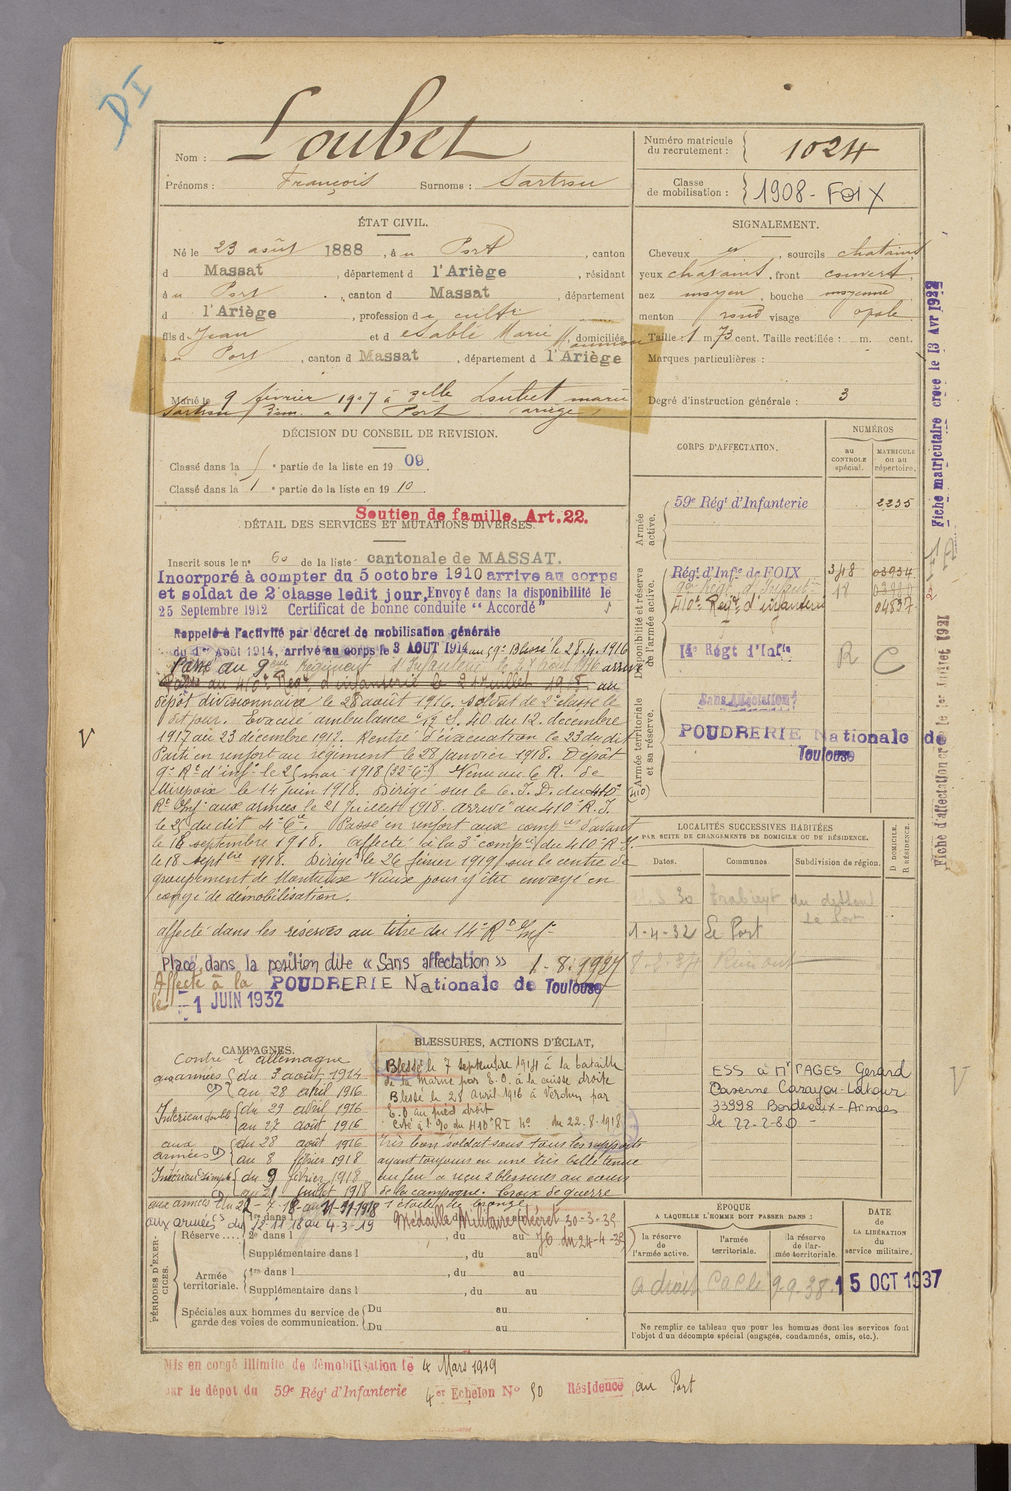 DI
Nom : Loubet
Prénoms : François Surnoms : Sartrou
Numéro matricule du recrutement : 1024
Classe de mobilisation : 1908 - FOIX
ÉTAT CIVIL.
Né le 23 août 1888, à u Port, canton
d Massat, département d l'Ariège, résidant
à u Port, canton d Massat, département
d l'Ariège, profession de culti
fils de Jean et d esablé Marie, domiciliés
à u Port, canton d Massat, département d l'Ariège
Marié le 9 février 1907 à delle Loubet marie
Sartrou à Port (ariège)
SIGNALEMENT.
Cheveux , sourcils chatains
yeux chatains, front couvert
nez moyen, bouche moyenne
menton rond visage opale
Taille : 1 m 73 cent. Taille rectifiée : m. cent.
Marques particulières :
Degré d'instruction générale : 3
DÉCISION DU CONSEIL DE REVISION.
Classé dans la 1 e partie de la liste en 1909.
Classé dans la 1 e partie de la liste en 1910.
Soutien de famille. Art. 22.
DÉTAIL DES SERVICES ET MUTATIONS DIVERSES.
Inscrit sous le n° 60 de la liste cantonale de MASSAT.
Incorporé à compter du 5 octobre 1910 arrive au corps
et soldat de 2e classe ledit jour, Envoyé dans la disponibilité le
25 Septembre 1912 Certificat de bonne conduite "Accordé"
Rappelé à l'activité par décret de mobilisation générale
du 1er Août 1914, arrivé au corps le 3 AOUT 1914 au 59e Blessé le 28.4.1916
Passé au 9eme Régiment d'Infanterie le 27 août 1916 arrivé
Passé au 410e Régt d'infanterie le 21 juillet 1918 au
dépôt divisionnaire le 28 août 1916. Soldat de 2e classe le
dit jour. Evacué ambulance 13 cf. 40 du 12 decembre
1917 au 23 décembre 1917. Rentré d'évacuation le 23 du dit
Parti en renfort au régiment le 28 Janvier 1918. Dépôt
9e Rt d'inf. le 25 mai 1918 (32e Cie) Venu au C. R. de
Mirepoix le 14 juin 1918. Dirigé sur le C.I.D. du 410e
Rt Inf. aux armées le 21 Juillet 1918. arrivé au 410e R.I.
le 25 du dit 4e Cie. Passé en renfort aux compies d'avant
le 16 septembre 1918. Affecté à la 3e compie du 410 R.I.
le 18 septbre 1918. Dirigé le 26 février 1919 sur le centre de
groupement de Vieux pour y être envoyé en
congé de démobilisation.
affecté dans les réserves au titre du 14e Rt d'Inf.
Placé dans la position dite « Sans affectation » 1-8-1927
Affecté à la POUDRERIE Nationale de Toulouse
le 1 JUIN 1932
CORPS D'AFFECTATION.
NUMÉROS
au CONTROLE spécial.
MATRICULE ou au répertoire.
Armée active.
59e Régt d'Infanterie 2235
Disponibilité et réserve de l'armée active.
Régt d'Infie de FOIX 348 03934
9e Régt d'Infant 18
410e Régt d'infanterie 04837
14e Régt d'Infie R C
Armée territoriale et sa réserve.
Sans Affectation
POUDRERIE Nationale de
Toulouse
LOCALITÉS SUCCESSIVES HABITÉES
PAR SUITE DE CHANGEMENTS DE DOMICILE OU DE RÉSIDENCE.
Dates. Communes Subdivision de région. D DOMICILE. R RÉSIDENCE.
1-4-32 Le Port
ESS à Mr PAGES Gérard
Caserne Carayon-Latour
33998 Bordeaux-Armées
le 22-2-80 -
CAMPAGNES.
Contre l'allemagne
aux armées du 3 août 1914
au 28 avril 1916
Intérieur du 29 avril 1916
au 27 août 1916
aux armées du 28 août 1916
au 8 février 1918
Intérieur simple du 9 février 1918
au 21 juillet 1918
aux armées du 22-7-18 au 11-11-1918
aux armées du 12 11 18 au 4-3-19
BLESSURES, ACTIONS D'ÉCLAT,
Blessé le 7 septembre 1914 à la bataille
de la Marne par E.O. à la cuisse droite
Blessé le 28 avril 1916 à Verdun par
E.O au pied droit
Cité à l'O. 90 du 410e RI du 22.8.1918
très bon soldat sous tous les rapports
ayant toujours eu une très belle tenue
au feu a reçu 2 blessures au cours
de la campagne. Croix de guerre
1 étoile de bronze
Médaille Militaire (décret 30-3-35
JO du 24-4-35
PÉRIODES D'EXERCICES.
Réserve
1re dans l
2e dans l , du au
Supplémentaire dans l , du au
Armée territoriale.
1re dans l , du au
Supplémentaire dans l , du au
Spéciales aux hommes du service de garde des voies de communication.
Du au
Du au
ÉPOQUE
A LAQUELLE L'HOMME DOIT PASSER DANS :
la réserve de l'armée active.
l'armée territoriale.
la réserve de l'armée territoriale.
DATE de LA LIBÉRATION du service militaire.
15 OCT 1937
Ne remplir ce tableau que pour les hommes dont les services font
l'objet d'un décompte spécial (engagés, condamnés, omis, etc.).
Mis en congé illimité de démobilisation le 4 Mars 1919
par le dépôt du 59e Régt d'Infanterie 4er Echelon N° 50 Résidence au Port
Fiche matriculaire créée le 13 Avr 1932
Fiche d'affectation créée le 1er Juillet 1921
V
V